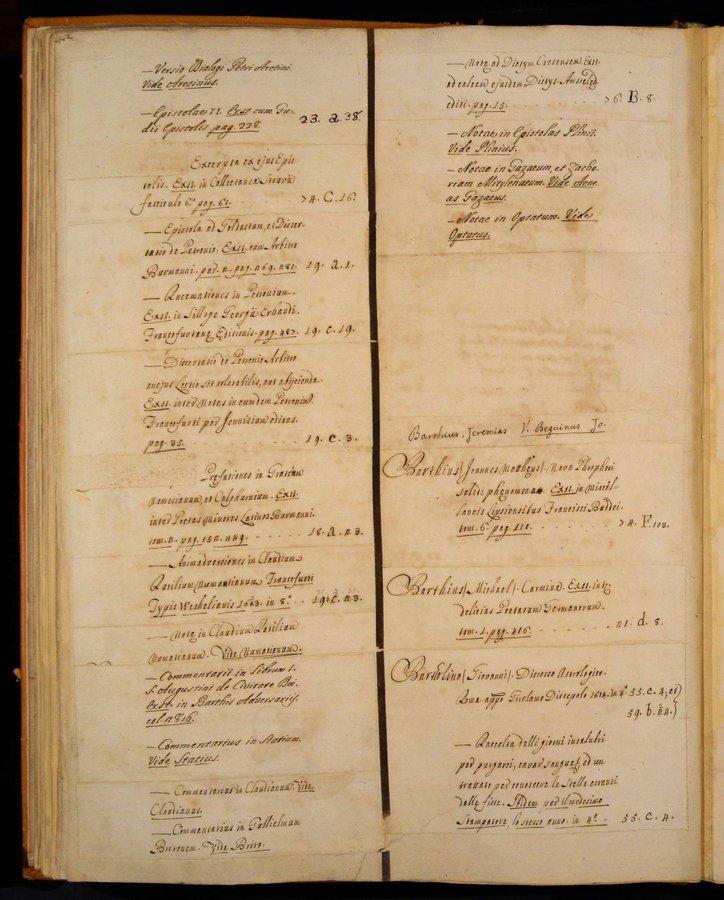 — Versio Dialogi Petri Aretini
Vide Aretinus.
— Epistolae II. Exst. cum Gu-
dii Epistolis pag. 228. 23. a. 38.
Excerpta ex ejus Epis
tolis. Exst. in Collectanea Struvii
fasciculo 6.º pag. 61. 74. C. 16.
— Epistola ad Goldastum, et Disser-
tatio de Petronio. Exst. cum Arbitro
Burmanni. 19. a. 1.
— Racemationes in Petronium.
Exst. in Sylloge Georgii Erhardi.
Francofurtanæ Editionis. pag. 487. 19. c. 19.
— Dissertatio de Petronio Arbitro
an ejus Lectio sit tolerabilis, aut abjicienda
Exst. inter Notas in eumdem Petronium.
Francofurti per editas.
pag. 35. 19. c. 3.
Præfationes in Gratium
Nemesianum, et Calphurnium. Exst.
inter Poetas Minores Latinos Burmanni.
18. a. 23.
— Animadversiones in Claudium
Rutilium Numantianum Francofurti
Typis Wechelianis 1623. in 8.º
— Notæ in Claudium Rutilium
Numatianum. Vide Numatianum.
— Commentarii in Librum I.
S. Augustini de Civitate Dei.
Exst. in Barthii Adversariis.
— Commentarius in Statium.
Vide Statius.
— Commentarius in Claudianum. Vide
Claudianus.
— Commentarius in Gullielmum
Britonem. Vide Brito.
— Notæ ad Dictym Cretensem Exst.
ad calcem ejusdem Dictys. Amstelod.
editi. pag. 15. 76. B. 8.
— Notae in Epistolas Plinii.
Vide Plinius.
— Notae in Gazaeum, et Zacha-
riam Mitylenaeum. Vide Aene-
as Gazaeus.
— Notae in Optatum. Vide
Optatus.
Barthius, Jeremias V. Beguinus Jo.
Barthius (Joannes Mattheus). Nova Phosphori
solidi phenomena. Exst. in Miscel-
laneis Lipsiensibus Francisci Buddei.
tom. 6.º pag. 110. 74. F. 113.
Barthius (Michael). Carmina. Exst. inter
delicias Poetarum Germanorum.
tom. 1. pag. 416. 21. d. 8.
Bartolino (Giovanni). Discorso Astrologico.
Roma appo Girolamo Discepolo 1614. in 4.º 55. c. 4, et)
59. b. 24.)
— Raccolta delli giorni insalubri
per purgarsi, cavar sangue, ed un
trattato per conoscere le Stelle erranti
dalle fisse. Ibidem per il medesimo
Stampatore, lo stesso anno. in 4.º 55. c. 4.